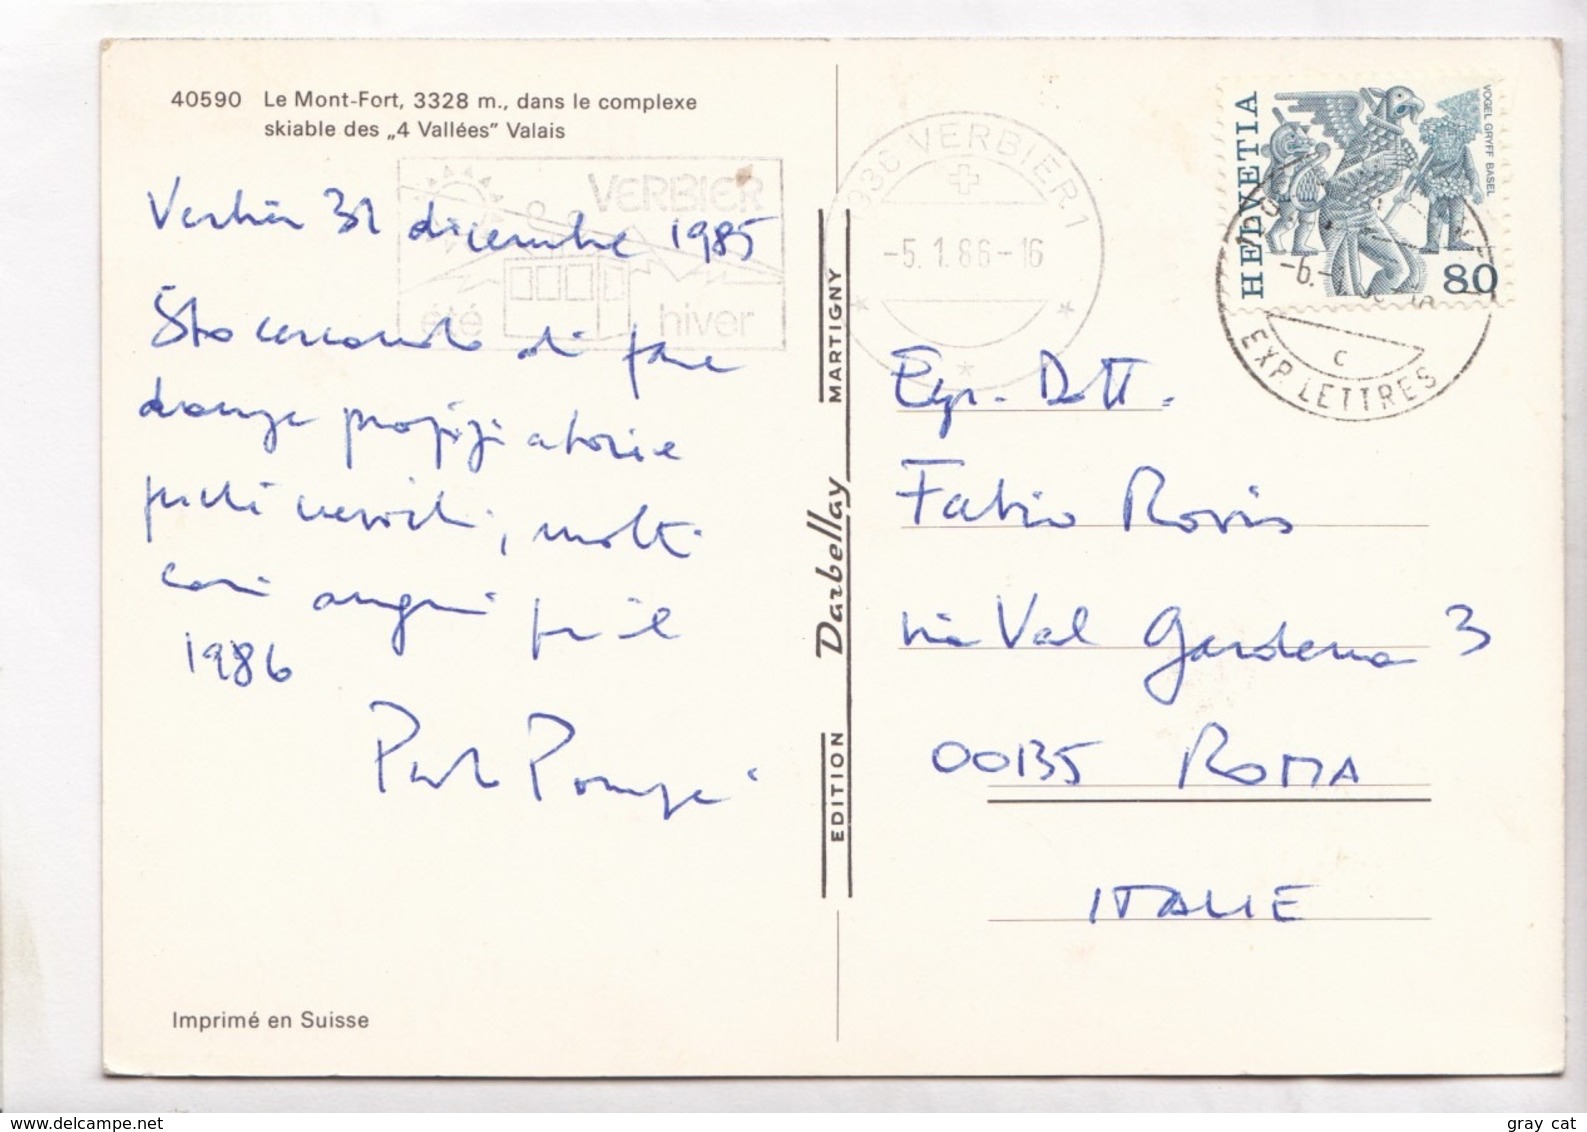 40590 Le Mont-Fort, 3328 m., dans le complexe
skiable des „4 Vallées” Valais
VERBIER
été hiver
Verbier 31 dicembre 1985
Sto cercando di fare
danze propiziatorie
perché nevichi, molti
cari auguri per il
1986
Imprimé en Suisse
EDITION Darbellay MARTIGNY
1936 VERBIER 1
-5.1.86-16
HELVETIA
VOGEL GRYFF BASEL
80
EXP. LETTRES
C
Egr. Dott.
Fabio
via Val Gardena 3
00135 ROMA
ITALIE
www.delcampe.net
gray cat